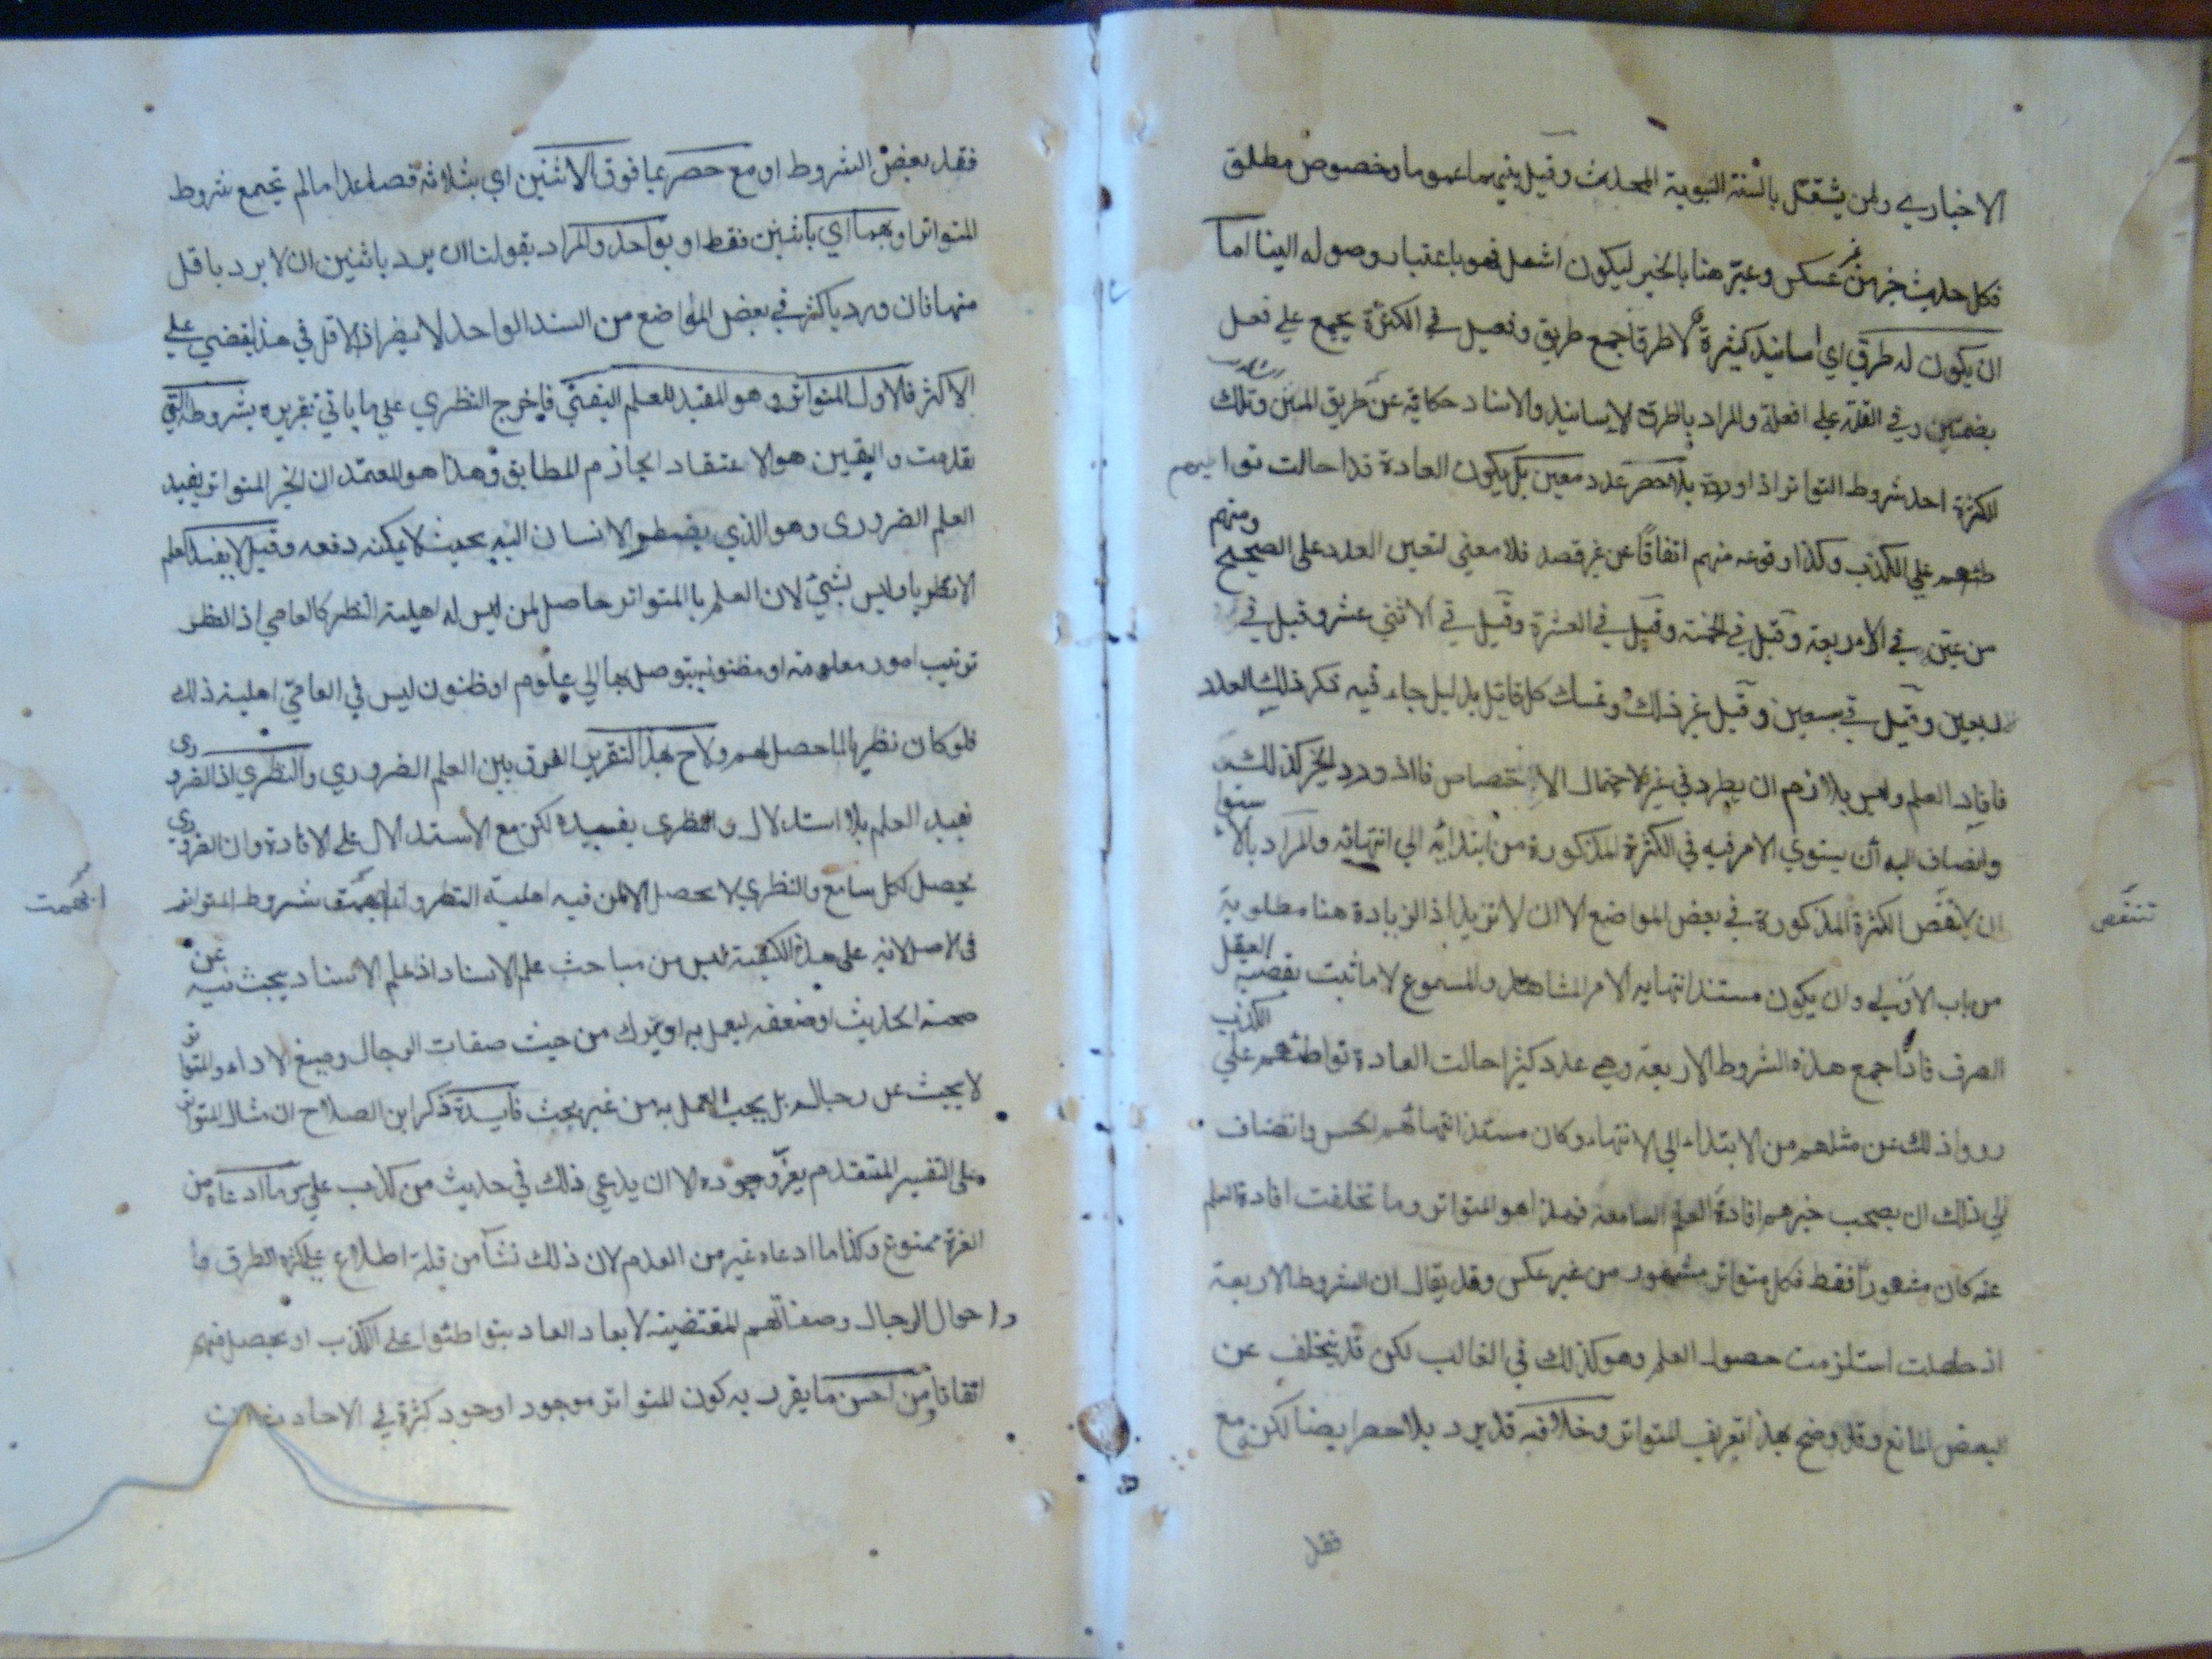 الاخباري ولمن يشتغل بالسنة النبوية المحدث وقيل بينهما عموما وخصوص مطلق
فكل حديث خبر من غير عكس وعبر هنا بالخبر ليكون اشمل فهو باعتبار وصوله الينا اما
ان يكون له طرق اي اسانيد كثيرة لان طرقا جمع طريق وفعيل في الكثرة يجمع علي فعل
بضمتين وفي القلة علي افعلة والمراد بالطرق الاسانيد والاسناد حكاية عن طريق المتن وتلك
الكثرة احد شروط التواتر اذا وردت بلا حصر عدد معين بل يكون العادة قد احالت تواطيهم
طئهم علي الكذب وكذا وقوعه منهم اتفاقا عن غير قصد فلا معني لتعين العدد على الصحيح ومنهم
من عين في الاربعة وقيل في الخمسة وقيل في العشرة وقيل في الاثني عشر وقيل في
اربعين وقيل في سبعين وقيل غير ذلك وتمسك كل قائل بدليل جاء فيه ذكر ذلك العدد
فافاد العلم وليس بلازم ان يطرد في غيره لاحتمال الاختصاص فاذا ورد الخبر كذلك
وانضاف اليه ان يستوي الامر فيه في الكثرة المذكورة من ابتدائه الي انتهائه والمراد بالاستوا
ان لا تنقص الكثرة المذكورة في بعض المواضع لا ان لا تزيد اذ الزيادة هنا مطلوبة
تنقص
من باب الاولي وان يكون مستند انتهايه الامر المشاهد والمسموع لا ما ثبت بقضية العقل
الصرف فاذا جمع هذه الشروط الاربعة وهي عدد كثير احالت العادة تواطئهم علي الكذب
رووا ذلك عن مثلهم من الابتداء الي الانتهاء وكان مستند انتهائهم الحس وانضاف
الي ذلك ان يصحب خبرهم افادة العلم لسامعه فهذا هو المتواتر وما تخلفت افادة العلم
عنه كان مشهورا فقط فكل متواتر مشهور من غير عكس وقد يقال ان الشروط الاربعة
اذ حصلت استلزمت حصول العلم وهو كذلك في الغالب لكن قد يتخلف عن
البعض لمانع وقد وضح بهذا تعريف المتواتر وخلافه قد يرد بلا حصر ايضا لكن مع
فقد
فقد بعض الشروط او مع حصر بما فوق الاثنين اي بثلاثة فصاعدا ما لم تجمع شروط
المتواتر او بهما اي باثنين فقط او بواحد والمراد بقولنا ان يرد باثنين ان لا يرد باقل
منهما فان ورد باكثر في بعض المواضع من السند الواحد لا يضر اذ الاقل في هذا يقضي علي
الاكثر فالاول المتواتر وهو المفيد للعلم اليقيني فاخرج النظري علي ما ياتي تقريره بشروطه التي
تقدمت واليقين هو الاعتقاد الجازم المطابق وهذا هو المعتمد ان الخبر المتواتر يفيد
العلم الضروري وهو الذي يضطر الانسان اليه بحيث لا يمكنه دفعه وقيل لا يفيد العلم
الا نظريا وليس بشيئ لان العلم بالمتواتر حاصل لمن ليس له اهلية النظر كالعامي اذ النظر
ترتيب امور معلومة او مظنونة يتوصل بها الي علوم او ظنون ليس في العامي اهلية ذلك
فلو كان نظريا لما حصل لهم ولاح بهذا التقرير الفرق بين العلم الضروري والنظري اذ الضروري
يفيد العلم بلا استدلال والنظري يفيده لكن مع الاستدلال علي الافادة وان الضروري
يحصل لكل سامع والنظري لا يحصل الا لمن فيه اهلية النظر وانما ابهمت شروط المتواتر
ابهمت
في الاصل لانه على هذه الكيفية ليس من مباحث علم الاسناد اذ علم الاسناد يبحث فيه عن
صحة الحديث او ضعفه ليعمل به او يترك من حيث صفات الرجال وصيغ الاداء والمتواتر
لا يبحث عن رجاله بل يجب العمل به من غير بحث فايدة ذكر ابن الصلاح ان مثال المتواتر
على التفسير المتقدم يعز وجوده الا ان يدعي ذلك في حديث من كذب علي وما ادعاه من
العزة ممنوع وكذا ما ادعاه غيره من العدم لان ذلك نشأ من قلة اطلاع علي كثرة الطرق
واحوال الرجال وصفاتهم المقتضية لابعاد العادة ان يتواطئوا على الكذب او يحصل منهم
اتفاقا ومن احسن ما يقرر به كون المتواتر موجود اوجود كثرة في الاحاديث ان